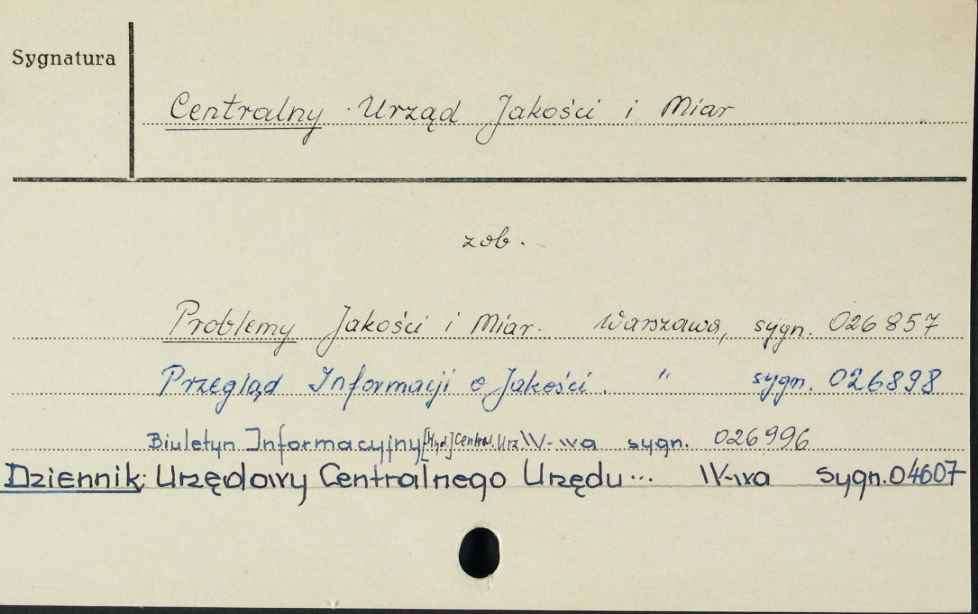 Sygnatura
Centralny Urząd Jakości i Miar
zob.
Problemy Jakości i Miar. Warszawa, sygn. 026857
Przegląd Informacji o Jakości. " sygn. 026898
Biuletyn Informacyjny [Wyd.] Central. Urz W-wa sygn. 026996
Dziennik Urzędowy Centralnego Urzędu... W-wa sygn. 04607